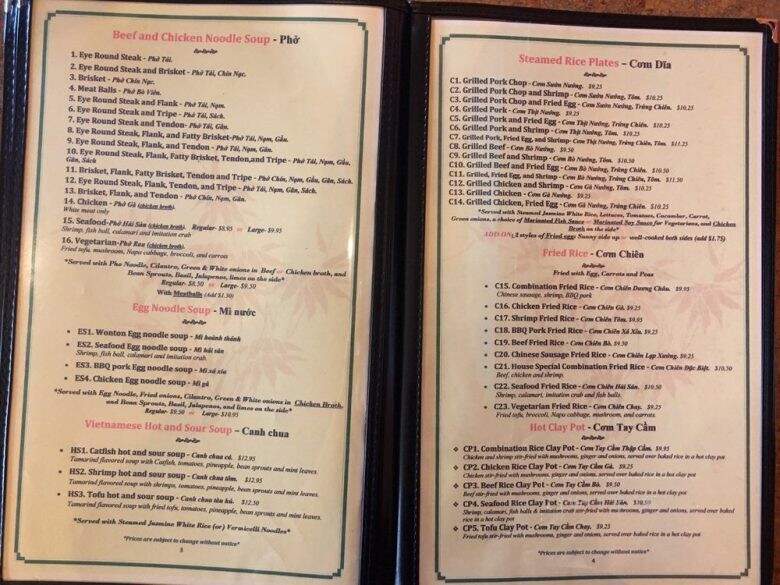 Beef and Chicken Noodle Soup - Phở
1. Eye Round Steak - Phở Tái.
2. Eye Round Steak and Brisket - Phở Tái, Chín Nạc.
3. Brisket - Phở Chín Nạc.
4. Meat Balls - Phở Bò Viên.
5. Eye Round Steak and Flank - Phở Tái, Nạm.
6. Eye Round Steak and Tripe - Phở Tái, Sách.
7. Eye Round Steak and Tendon- Phở Tái, Gân.
8. Eye Round Steak, Flank, and Fatty Brisket-Phở Tái, Nạm, Gầu.
9. Eye Round Steak, Flank, and Tendon - Phở Tái, Nạm, Gân.
10. Eye Round Steak, Flank, Fatty Brisket, Tendon,and Tripe - Phở Tái, Nạm, Gầu,
Gân, Sách
11. Brisket, Flank, Fatty Brisket, Tendon and Tripe - Phở Chín, Nạm, Gầu, Gân, Sách.
12. Eye Round Steak, Flank, Tendon, and Tripe - Phở Tái, Nạm, Gân, Sách.
13. Brisket, Flank, and Tendon - Phở Chín, Nạm, Gân.
14. Chicken - Phở Gà (chicken broth).
White meat only
15. Seafood-Phở Hải Sản (chicken broth). Regular- $8.95 or Large- $9.95
Shrimp, fish ball, calamari and imitation crab
16. Vegetarian-Phở Rau (chicken broth).
Fried tofu, mushroom, Napa cabbage, broccoli, and carrots
*Served with Pho Noodle, Cilantro, Green & White onions in Beef or Chicken broth, and
Bean Sprouts, Basil, Jalapenos, limes on the side*
Regular- $8.50 or Large- $9.50
With Meatballs (Add $1.50)
Egg Noodle Soup - Mì nước
ES1. Wonton Egg noodle soup - Mì hoành thánh
ES2. Seafood Egg noodle soup - Mì hải sản
Shrimp, fish ball, calamari and imitation crab.
ES3. BBQ pork Egg noodle soup - Mì xá xíu
ES4. Chicken Egg noodle soup - Mì gà
*Served with Egg Noodle, Fried onions, Cilantro, Green & White onions in Chicken Broth,
and Bean Sprouts, Basil, Jalapenos, and limes on the side*
Regular- $9.50 or Large - $10.95
Vietnamese Hot and Sour Soup – Canh chua
HS1. Catfish hot and sour soup - Canh chua cá. $12.95
Tamarind flavored soup with Catfish, tomatoes, pineapple, bean sprouts and mint leaves.
HS2. Shrimp hot and sour soup - Canh chua tôm. $12.95
Tamarind flavored soup with shrimps, tomatoes, pineapple, bean sprouts and mint leaves.
HS3. Tofu hot and sour soup - Canh chua tàu hủ. $12.50
Tamarind flavored soup with fried tofu, tomatoes, pineapple, bean sprouts and mint leaves.
*Served with Steamed Jasmine White Rice (or) Vermicelli Noodles*
*Prices are subject to change without notice*
3
Steamed Rice Plates – Cơm Dĩa
C1. Grilled Pork Chop - Cơm Sườn Nướng. $9.25
C2. Grilled Pork Chop and Shrimp - Cơm Sườn Nướng, Tôm. $10.25
C3. Grilled Pork Chop and Fried Egg - Cơm Sườn Nướng, Trứng Chiên. $10.25
C4. Grilled Pork - Cơm Thịt Nướng. $9.25
C5. Grilled Pork and Fried Egg - Cơm Thịt Nướng, Trứng Chiên. $10.25
C6. Grilled Pork and Shrimp - Cơm Thịt Nướng, Tôm. $10.25
C7. Grilled Pork, Fried Egg, and Shrimp- Cơm Thịt Nướng, Trứng Chiên, Tôm. $11.25
C8. Grilled Beef - Cơm Bò Nướng. $9.50
C9. Grilled Beef and Shrimp - Cơm Bò Nướng, Tôm. $10.50
C10. Grilled Beef and Fried Egg - Cơm Bò Nướng, Trứng Chiên. $10.50
C11. Grilled, Fried Egg, and Shrimp - Cơm Bò Nướng, Trứng Chiên, Tôm. $11.50
C12. Grilled Chicken and Shrimp - Cơm Gà Nướng, Tôm. $10.25
C13. Grilled Chicken - Cơm Gà Nướng. $9.25
C14. Grilled Chicken, Fried Egg - Cơm Gà Nướng, Trứng Chiên. $10.25
*Served with Steamed Jasmine White Rice, Lettuces, Tomatoes, Cucumber, Carrot,
Green onions, a choice of Marinated Fish Sauce or Marinated Soy Sauce for Vegetarians, and Chicken
Broth on the side*
ADD-ON(2 styles of Fried egg: Sunny side up or well-cooked both sides (add $1.75)
Fried Rice - Cơm Chiên
Fried with Egg, Carrots and Peas
C15. Combination Fried Rice - Cơm Chiên Dương Châu. $9.95
Chinese sausage, shrimp, BBQ pork
C16. Chicken Fried Rice - Cơm Chiên Gà. $9.25
C17. Shrimp Fried Rice - Cơm Chiên Tôm. $9.95
C18. BBQ Pork Fried Rice - Cơm Chiên Xá Xíu. $9.25
C19. Beef Fried Rice - Cơm Chiên Bò. $9.50
C20. Chinese Sausage Fried Rice - Cơm Chiên Lạp Xưởng. $9.25
C21. House Special Combination Fried Rice - Cơm Chiên Đặc Biệt. $10.50
Beef, chicken and shrimp.
C22. Seafood Fried Rice - Cơm Chiên Hải Sản. $10.50
Shrimp, calamari, imitation crab and fish balls.
C23. Vegetarian Fried Rice - Cơm Chiên Chay. $9.25
Fried tofu, broccoli, Napa cabbage, mushroom, and carrots.
Hot Clay Pot - Cơm Tay Cầm
CP1. Combination Rice Clay Pot - Cơm Tay Cầm Thập Cẩm. $9.95
Chicken and shrimp stir-fried with mushrooms, ginger and onions, served over baked rice in a hot clay pot
CP2. Chicken Rice Clay Pot - Cơm Tay Cầm Gà. $9.25
Chicken stir-fried with mushrooms, ginger and onions, served over baked rice in a hot clay pot
CP3. Beef Rice Clay Pot - Cơm Tay Cầm Bò. $9.50
Beef stir-fried with mushrooms, ginger and onions, served over baked rice in a hot clay pot
CP4. Seafood Rice Clay Pot - Cơm Tay Cầm Hải Sản.
Shrimp, calamari, fish balls & imitation crab stir-fried with mushrooms, ginger and onions, served over baked
rice in a hot clay pot
CP5. Tofu Clay Pot - Cơm Tay Cầm Chay. $9.25
Fried tofu stir-fried with mushrooms, ginger and onions, served over baked rice in a hot clay pot
*Prices are subject to change without notice*
4